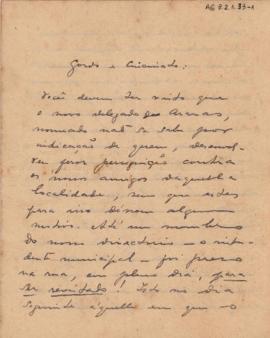 AG 8.2.1.33-1
Gordo e Cincinato:
Você devem ter visto que
o novo delegado de Araras,
nomeado não se sabe por
indicação de quem, desenvol-
veu feroz perseguição contra
os nossos amigos daquella
localidade, sem que estes
para isso dessem algum
motivo. Até um membro
do nosso directorio — o inten-
dente municipal — foi preso
na rua, em pleno dia, para
ser revistado! Isto no dia
seguinte áquelle em que o